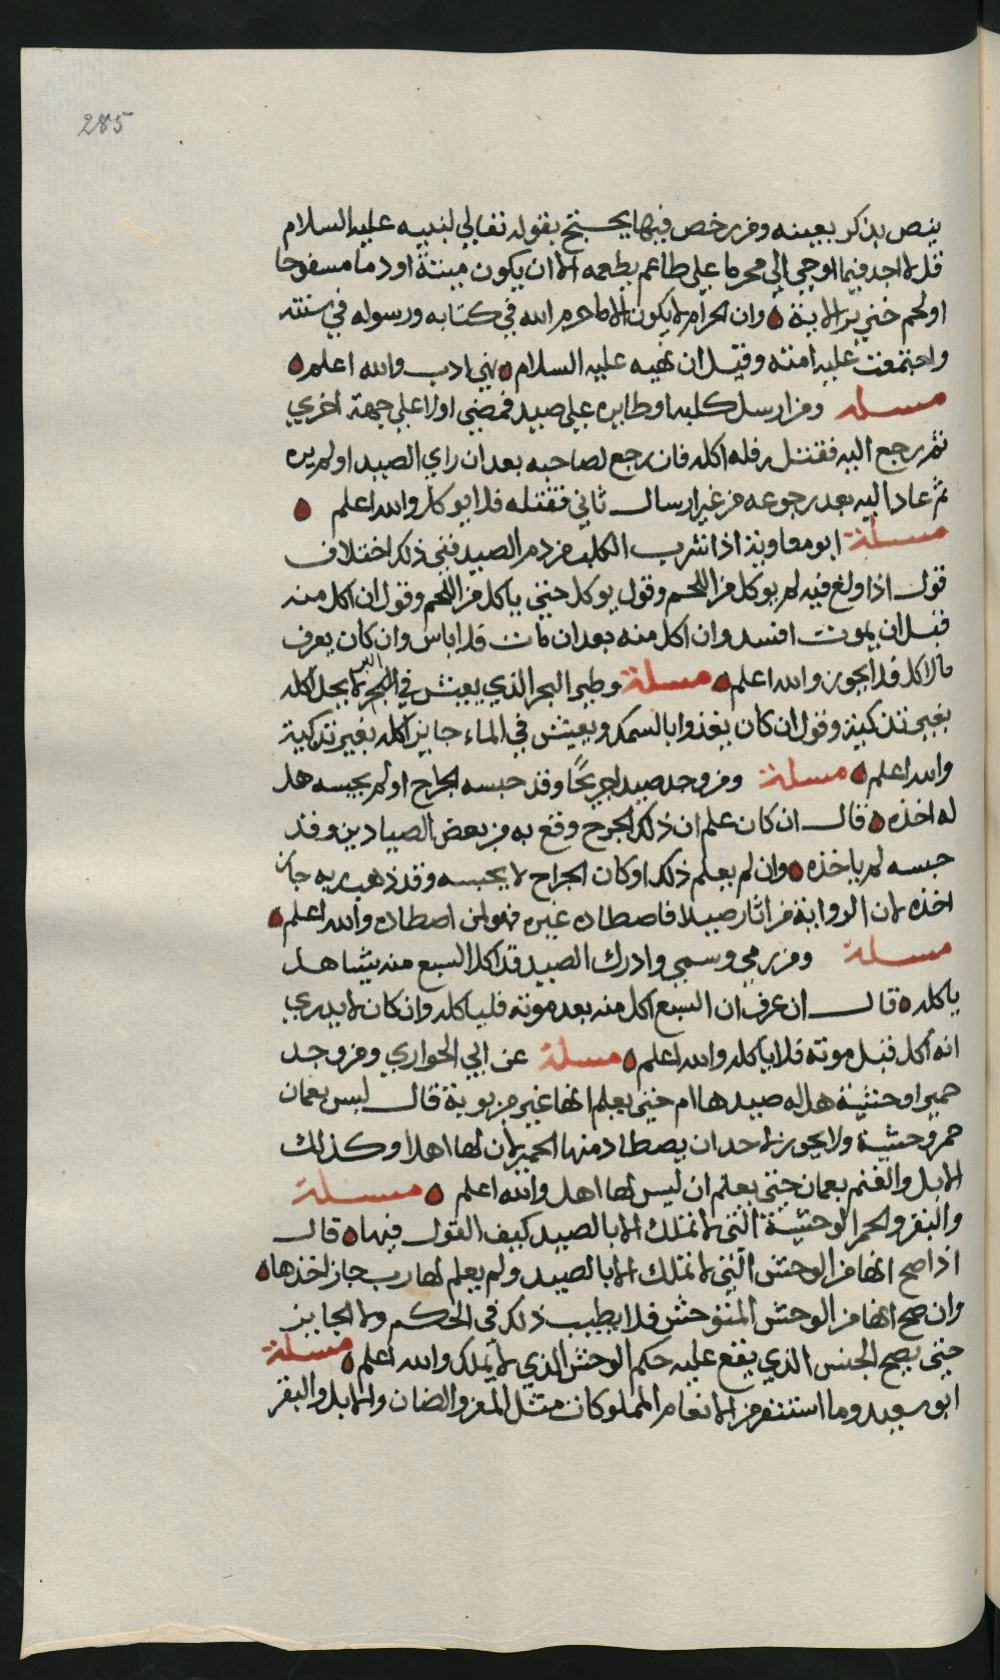 285
ينص بذكر بعينه ومن رخص فيها يحتج بقوله تعالي لنبيه عليه السلام
قل لا اجد فيما اوحي الي محرما علي طاعم يطعمه الا ان يكون ميتة او دما مسفوحا
او لحم خنزير الاية وان الحرام لا يكون الا ما حرم الله في كتابه ورسوله في سنته
واجتمعت عليه امته وقيل ان نهيه عليه السلام نهي ادب والله اعلم
مسلة ومن ارسل كلبه او طايره علي صيد فمضي اولا علي جهة اخري
ثم رجع اليه فقتله فله اكله فان رجع لصاحبه بعد ان راي الصيد او لم يره
ثم عاد اليه بعد رجوعه من غير ارسال ثاني فقتله فلا يوكل والله اعلم
مسلة ابو معاوية اذا شرب الكلب من دم الصيد ففي ذلك اختلاف
قول اذا ولغ فيه لم يوكل من اللحم وقول يوكل حتي ياكل من اللحم وقول ان اكل منه
قبل ان يموت افسد وان اكل منه بعد ان مات فلا باس وان كان يعرف
بالاكل فلا يجوز والله اعلم مسلة وطير البحر الذي يعيش في البحر والبر لا يحل اكله
بغير تذكية وقول ان كان يغذوا بالسمك ويعيش في الماء جايز اكله بغير تذكية
والله اعلم مسلة ومن وجد صيدا جريحًا وقد حبسه الجراح او لم يحبسه هل
له اخذه قال ان كان علم ان ذلك الجرح وقع به من بعض الصيادين وقد
حبسه لم ياخذه وان لم يعلم ذلك او كان الجراح لا يحبسه وقد ذهب ربه جاز
اخذه لان الرواية من اثار صيدا فاصطاده غيره فهو لمن اصطاده والله اعلم
مسلة ومن رمي وسمي وادرك الصيد قد اكل السبع منه شيا هل
ياكله قال ان عرف ان السبع اكل منه بعد موته فلياكله وان كان لا يدري
انه اكل قبل موته فلا ياكله والله اعلم مسلة عن ابي الحواري ومن وجد
حميرا وحشية هل له صيدها ام حتي يعلم انها غير مربوبة قال ليس بعمان
حمر وحشية ولا يجوز لاحد ان يصطاد منها الحمير لان لها اهلا وكذلك
الابل والغنم بعمان حتي يعلم ان ليس لها اهل والله اعلم مسلة
والبقر والحمر الوحشية التي لا تملك الا بالصيد كيف القول فيها قال
اذا صح انها من الوحش التي لا تملك الا بالصيد ولم يعلم لها رب جاز اخذها
وان صح انها من الوحش المتوحش فلا يطيب ذلك في الحكم ولا الجايز
حتي يصح الجنس الذي يقع عليه حكم الوحش الذي لا يملك والله اعلم مسلة
ابو سعيد وما استنفر من الانعام المملوكات مثل المعز والضان والابل والبقر